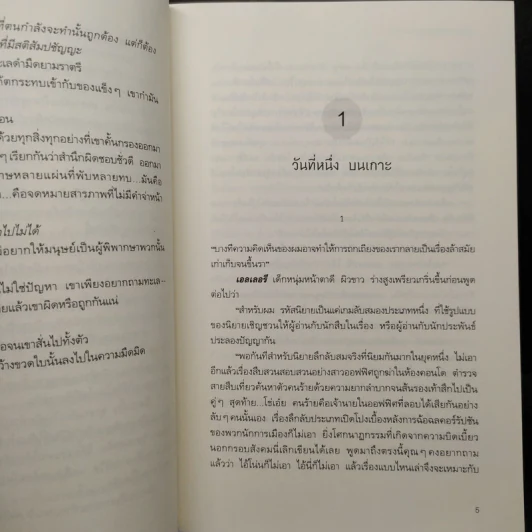 ที่ตนกำลังจะทำนั้นถูกต้อง แต่ก็ต้อง
ที่มีสติสัมปชัญญะ
ะเลดำมืดยามราตรี
กระทบเข้ากับของแข็งๆ เขากำมัน
อน
ด้วยทุกสิ่งทุกอย่างที่เขาคั้นกรองออกมา
ๆ เรียกกันว่าสำนึกผิดชอบชั่วดี ออกมา
าษหลายแผ่นที่พับหลายทบ...มันคือ
...คือจดหมายสารภาพที่ไม่มีคำจ่าหน้า
าไปไม่ได้
อยากให้มนุษย์เป็นผู้พิพากษาพวกนั้น
ไม่ใช่ปัญหา เขาเพียงอยากถามทะเล-
ยแล้วเขาผิดหรือถูกกันแน่
อจนเขาสั่นไปทั้งตัว
ว้างขวดใบนั้นลงไปในความมืดมิด
1
วันที่หนึ่ง บนเกาะ
1
"บางทีความคิดเห็นของผมอาจทำให้การถกเถียงของเรากลายเป็นเรื่องล้าสมัย
เก่าเก็บจนขึ้นรา"
เอลเลอรี เด็กหนุ่มหน้าตาดี ผิวขาว ร่างสูงเพรียวเกริ่นขึ้นก่อนพูด
ต่อไปว่า
"สำหรับผม รหัสนิยายเป็นแค่เกมลับสมองประเภทหนึ่ง ที่ใช้รูปแบบ
ของนิยายเชิญชวนให้ผู้อ่านกับนักสืบในเรื่อง หรือผู้อ่านกับนักประพันธ์
ประลองปัญญากัน
"พอกันทีสำหรับนิยายลึกลับสมจริงที่นิยมกันมากในยุคหนึ่ง ไม่เอา
อีกแล้วเรื่องสืบสวนสอบสวนอย่างสาวออฟฟิศถูกฆ่าในห้องคอนโด ตำรวจ
สายสืบเที่ยวค้นหาตัวคนร้ายด้วยความยากลำบากจนส้นรองเท้าสึกไปเป็น
คู่ๆ สุดท้าย...โธ่เอ๋ย คนร้ายคือเจ้านายในออฟฟิศที่ลอบได้เสียกันอย่าง
ลับๆ คนนั้นเอง เรื่องลึกลับประเภทเปิดโปงเบื้องหลังการฉ้อฉลคอร์รัปชัน
ของพวกนักการเมืองก็ไม่เอา ยิ่งโศกนาฏกรรมที่เกิดจากความบิดเบี้ยว
นอกกรอบสังคมนี่เลิกเขียนได้เลย พูดมาถึงตรงนี้คุณๆ คงอยากถาม
แล้วว่า ไอ้โน่นก็ไม่เอา ไอ้นี่ก็ไม่เอา แล้วเรื่องแบบไหนเล่าจึงจะเหมาะกับ
5